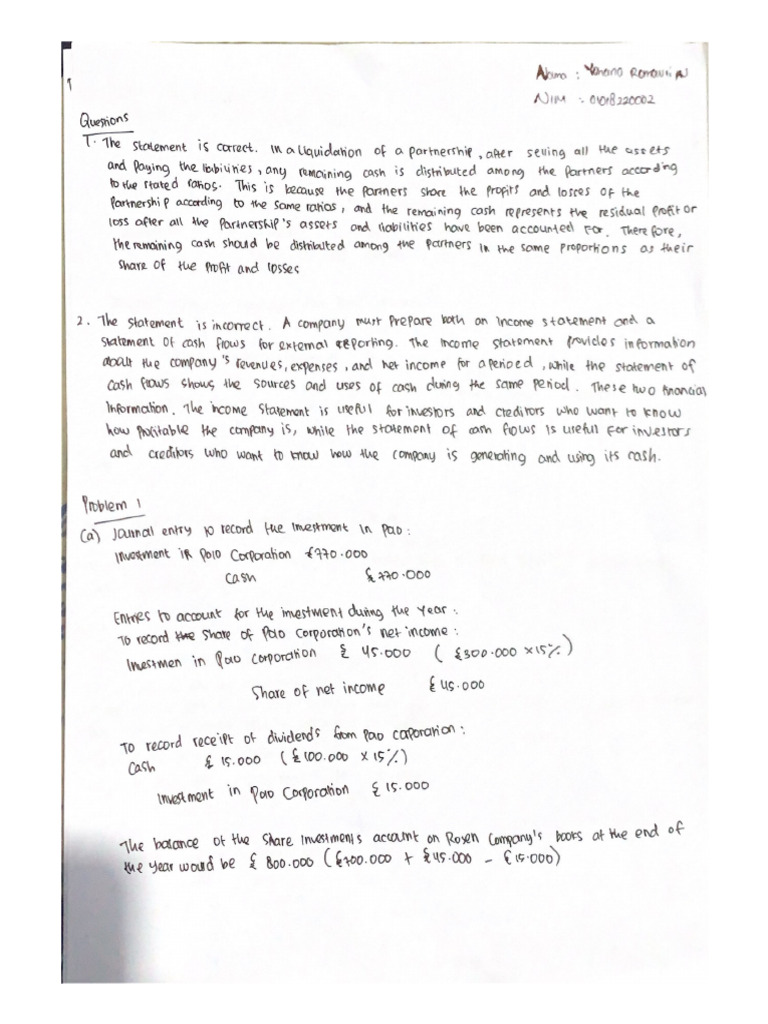 Nama : Yohana Romauli N
NIM : 01018220002
Questions
1. The statement is correct. In a liquidation of a partnership, after selling all the assets
and paying the liabilities, any remaining cash is distributed among the partners according
to the stated ratios. This is because the partners share the profits and losses of the
partnership according to the same ratios, and the remaining cash represents the residual profit or
loss after all the partnership's assets and liabilities have been accounted for. Therefore,
the remaining cash should be distributed among the partners in the same proportions as their
share of the profit and losses
2. The statement is incorrect. A company must prepare both an income statement and a
statement of cash flows for external reporting. The income statement provides information
about the company's revenues, expenses, and net income for a perioed, while the statement of
cash flows shows the sources and uses of cash during the same period. These two financial
information. The income statement is useful for investors and creditors who want to know
how profitable the company is, while the statement of cash flows is useful for investors
and creditors who want to know how the company is generating and using its cash.
Problem 1
(a) Journal entry to record the investment in Polo:
Investment in Polo Corporation £770.000
Cash £770.000
Entries to account for the investment during the year:
To record the share of Polo Corporation's net income:
Investmen in Polo corporation £ 45.000 (£300.000 x15%)
Share of net income £45.000
To record receipt of dividends from Polo corporation:
Cash £ 15.000 (£100.000 x 15%)
Investment in Polo Corporation £15.000
The balance of the share investments account on Rosen Company's books at the end of
the year would be £ 800.000 (£700.000 + £45.000 - £15.000)